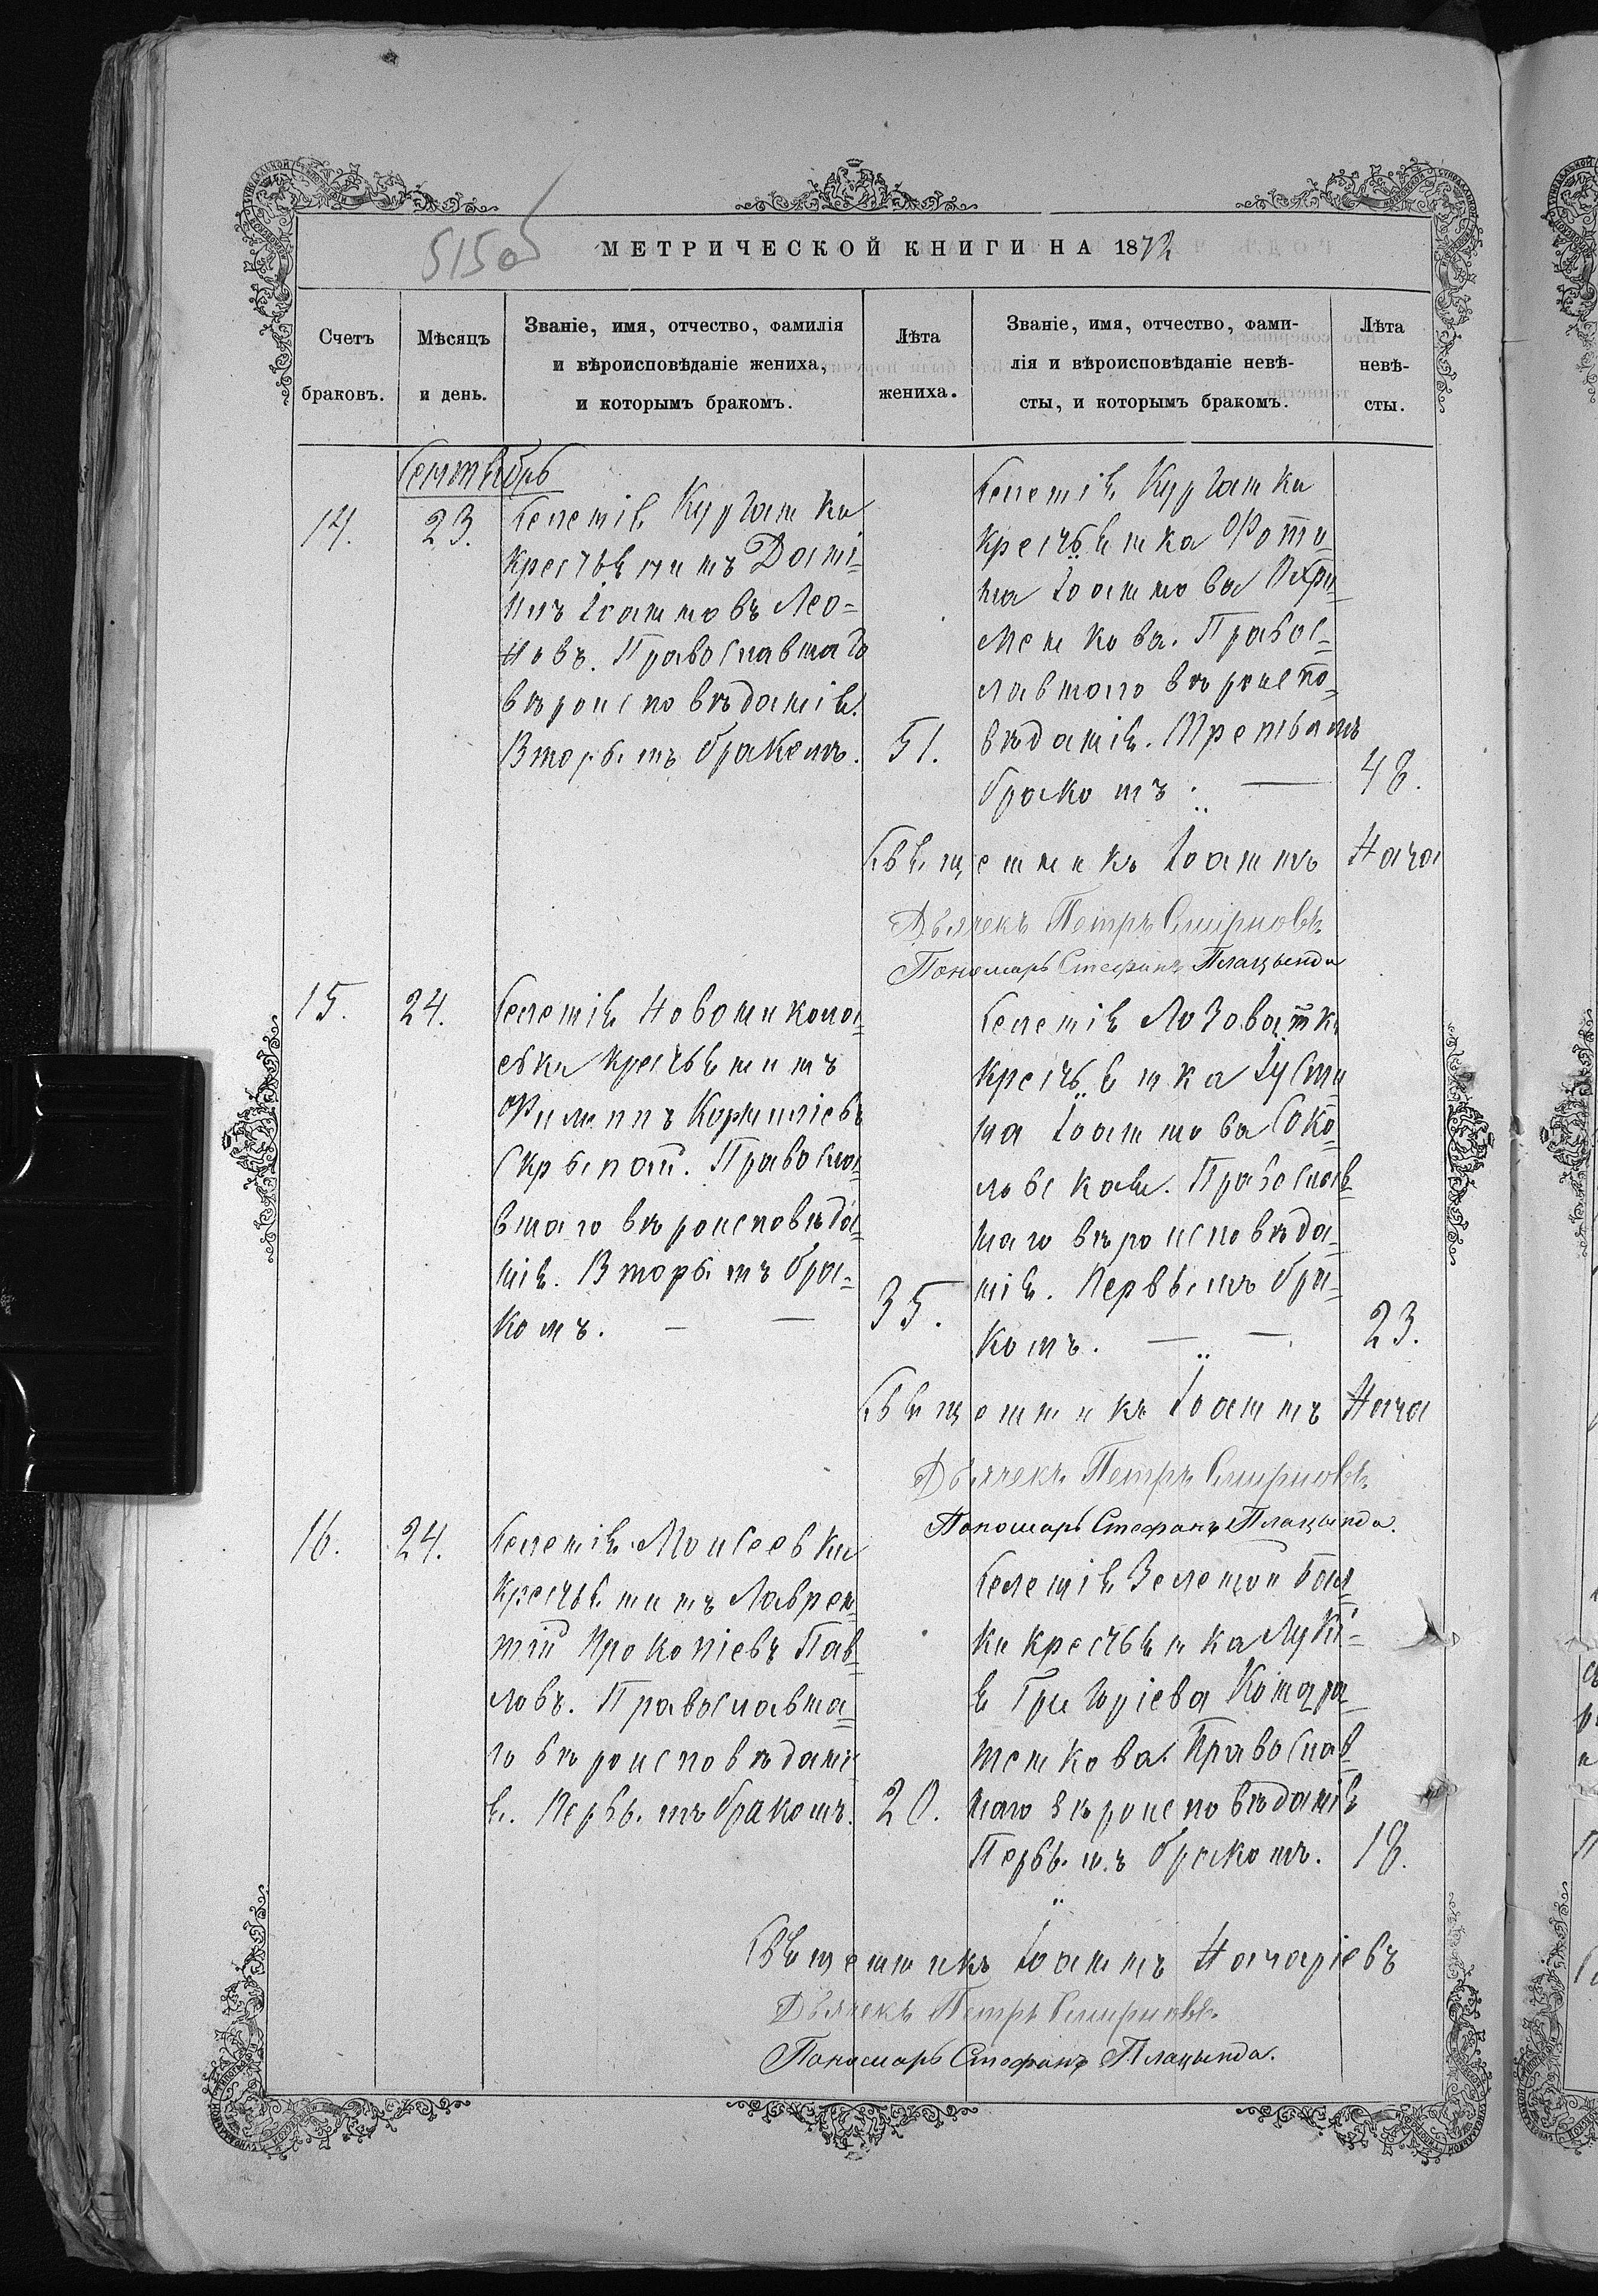 515об
МЕТРИЧЕСКОЙ КНИГИ НА 1872
Счетъ
браковъ.
Мѣсяцъ
и день.
Званіе, имя, отчество, фамилія
и вѣроисповѣданіе жениха,
и которымъ бракомъ.
Лѣта
жениха.
Званіе, имя, отчество, фами-
лія и вѣроисповѣданіе невѣ-
сты, и которымъ бракомъ.
Лѣта
невѣ-
сты.
Сентябрь
14.
23.
Селенія Кургани ки
крестьянинъ Дані=
илъ Іоанновъ Лео=
новъ. Православнаго
вѣроисповѣданія.
Вторымъ бракомъ.
51.
Селенія Кургани ки
крестьянка Фоти=
на Іоаннова Охри=
менкова. Правос=
лавнаго вѣроиспо=
вѣданія. Третьимъ
бракомъ.
48.
Священникъ Іоаннъ Нача
Дьячекъ Петръ Смирновъ
Пономарь Стефанъ Плацында
15.
24.
Селенія Новоникола=
евки крестьянинъ
Филиппъ Корниліевъ
Скрыпай. Правосла=
внаго вѣроисповѣда=
нія. Вторымъ бра=
комъ.
35.
Селенія Лозоватки
крестьянка Іусти=
на Іоаннова Соко=
ловская. Православ=
наго вѣроисповѣда=
нія. Первымъ бра=
комъ.
23.
Священникъ Іоаннъ Нача
Дьячекъ Петръ Смирновъ
Пономарь Стефанъ Плацында.
16.
24.
Селенія Моисеевки
крестьянинъ Лаврен=
тій Прокопіевъ Пав=
ловъ. Православна=
го вѣроисповѣдані=
я. Первымъ бракомъ.
20.
Селенія Зеленой Бал=
ки крестьянка Луки=
я Григоріева
Православ=
наго вѣроисповѣданія
Первымъ бракомъ.
18.
Священникъ Іоаннъ Начаріевъ
Дьячекъ Петръ Смирновъ
Пономарь Стефанъ Плацында.